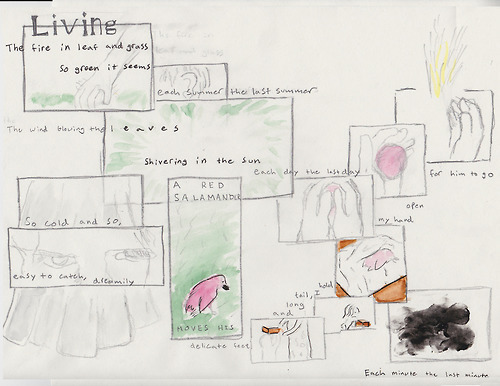 Living
The fire in leaf and grass
So green it seems
each summer the last summer
The wind blowing the leaves
Shivering in the sun
each day the last day
A RED
SALAMANDER
So cold and so,
easy to catch, dreamily
MOVES HIS
delicate feet
and
long
tail, I
hold
my hand
open
for him to go
Each minute the last minute